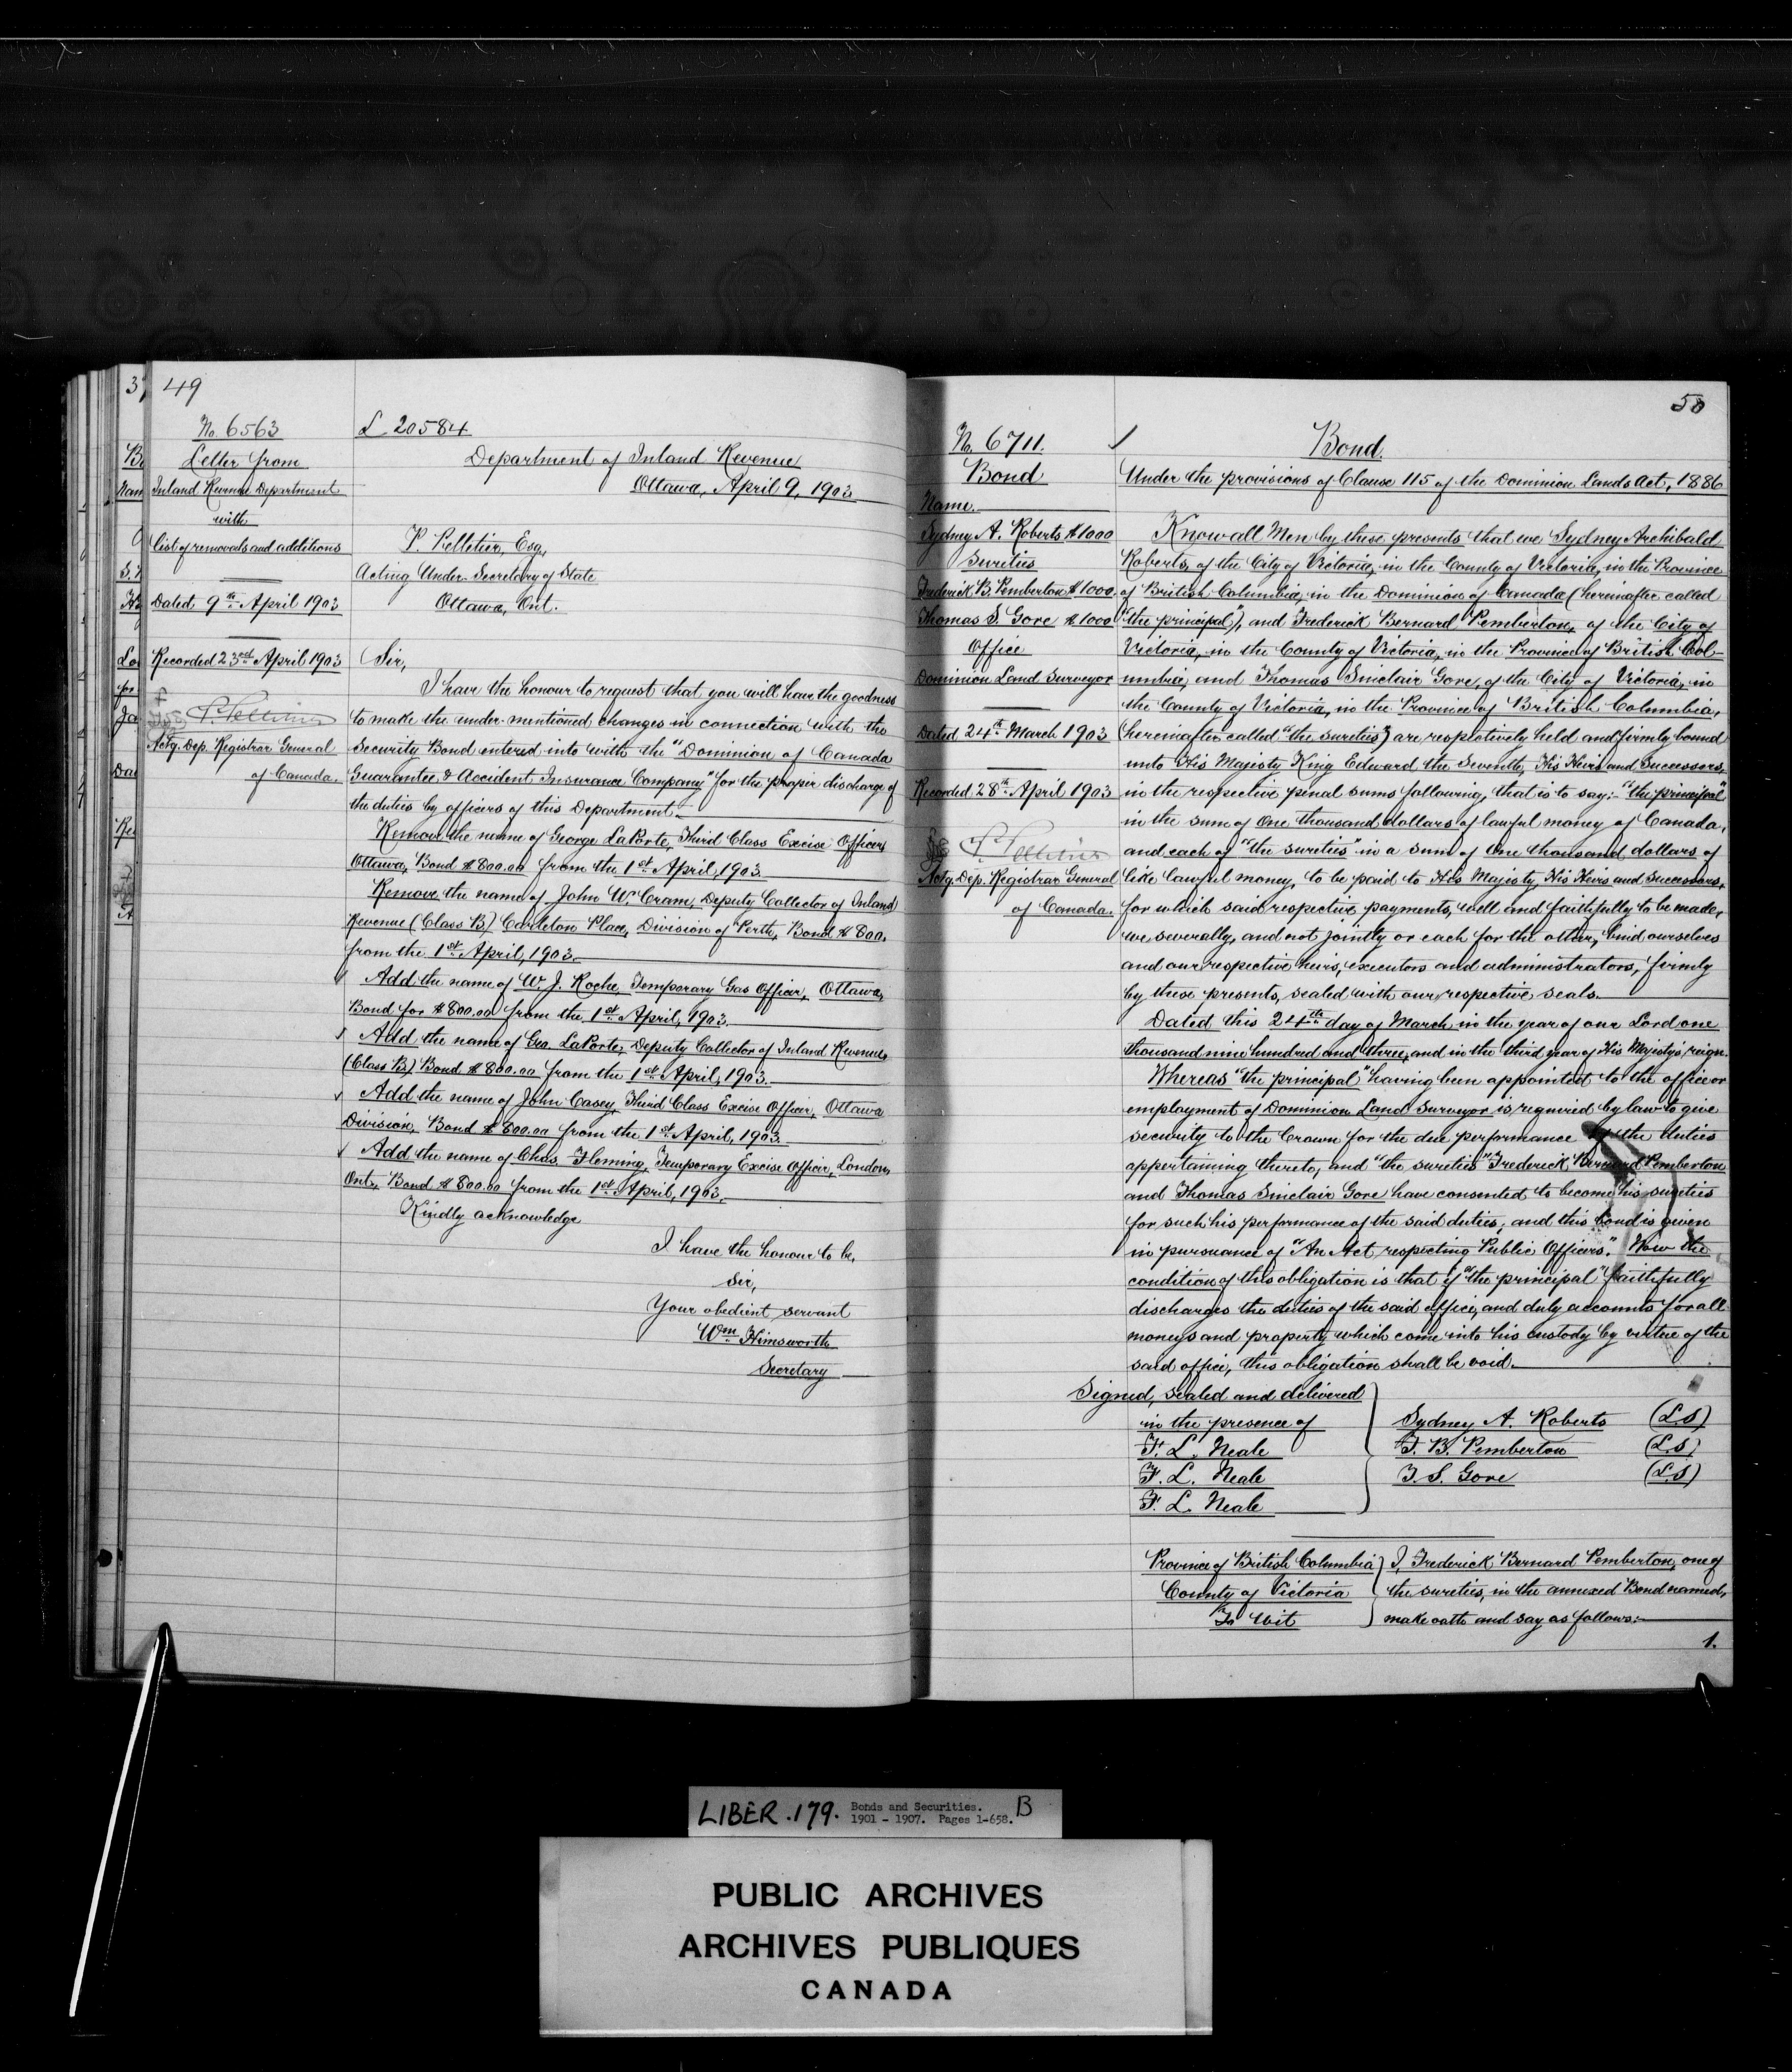 49
No. 6563
Letter from
Inland Revenue Department
with
list of removals and additions
Dated 9th April 1903
Recorded 23rd April 1903
P. Pelletier
Actg. Dep. Registrar General
of Canada.
L 20584
Department of Inland Revenue
Ottawa, April 9, 1903
P. Pelletier, Esq,
Acting Under-Secretary of State
Ottawa, Ont.
Sir,
I have the honour to request that you will have the goodness
to make the under-mentioned changes in connection with the
Security Bond entered into with the "Dominion of Canada
Guarantee & Accident Insurance Company" for the proper discharge of
the duties by officers of this Department.
Remove the name of George LaPorte, Third Class Excise Officer
Ottawa, Bond $800.00 from the 1st April, 1903.
Remove the name of John W. Cram, Deputy Collector of Inland
Revenue (Class B) Carleton Place, Division of Perth, Bond $800.
from the 1st April, 1903.
√ Add the name of W. J. Roche, Temporary Gas Officer, Ottawa,
Bond for $800.00 from the 1st April, 1903.
√ Add the name of Geo. LaPorte, Deputy Collector of Inland Revenue,
(Class B) Bond $800.00 from the 1st April, 1903.
√ Add the name of John Casey, Third Class Excise Officer, Ottawa
Division, Bond $800.00 from the 1st April, 1903.
√ Add the name of Chas. Fleming, Temporary Excise Officer, London,
Ont., Bond $800.00 from the 1st April, 1903.
Kindly acknowledge
I have the honour to be,
Sir,
Your obedient servant
Wm Himsworth
Secretary
50
No. 6711.
Bond
Name.
Sydney A. Roberts $1000
Sureties
Frederick B. Pemberton $1000.
Thomas S. Gore $1000
Office
Dominion Land Surveyor
Dated 24th March 1903
Recorded 28th April 1903
P. Pelletier
Actg. Dep. Registrar General
of Canada.
√ Bond
Under the provisions of Clause 115 of the Dominion Lands Act, 1886
Know all Men by these presents that we Sydney Archibald
Roberts, of the City of Victoria, in the County of Victoria, in the Province
of British Columbia, in the Dominion of Canada (hereinafter called
"the principal"), and Frederick Bernard Pemberton, of the City of
Victoria, in the County of Victoria, in the Province of British Col-
umbia, and Thomas Sinclair Gore, of the City of Victoria, in
the County of Victoria, in the Province of British Columbia,
(hereinafter called "the sureties") are respectively held and firmly bound
unto His Majesty King Edward the Seventh, His Heirs and Successors,
in the respective penal sums following, that is to say:- "the principal"
in the sum of One thousand dollars of lawful money of Canada,
and each of "the sureties" in a sum of One thousand dollars of
like lawful money, to be paid to His Majesty, His Heirs and Successors,
for which said respective payments, well and faithfully to be made,
we severally, and not jointly or each for the other, bind ourselves
and our respective heirs, executors and administrators, firmly
by these presents, sealed with our respective seals.
Dated this 24th day of March in the year of our Lord one
thousand nine hundred and three, and in the third year of His Majesty's reign.
Whereas "the principal" having been appointed to the office or
employment of Dominion Land Surveyor is required by law to give
security to the Crown for the due performance of the duties
appertaining thereto, and "the sureties" Frederick Bernard Pemberton
and Thomas Sinclair Gore have consented to become his sureties
for such his performance of the said duties, and this bond is given
in pursuance of "An Act respecting Public Officers". Now the
condition of this obligation is that if "the principal" faithfully
discharges the duties of the said office, and duly accounts for all
moneys and property which come into his custody by virtue of the
said office, this obligation shall be void.
Signed, sealed and delivered
in the presence of
F. L. Neale
F. L. Neale
F. L. Neale
Sydney A. Roberts (L.S)
F. B. Pemberton (L.S)
T. S. Gore (L.S)
Province of British Columbia
County of Victoria
To Wit
I, Frederick Bernard Pemberton, one of
the sureties, in the annexed Bond named,
make oath and say as follows:-
1.
LIBER .179. Bonds and Securities. B
1901 - 1907. Pages 1-658.
PUBLIC ARCHIVES
ARCHIVES PUBLIQUES
CANADA